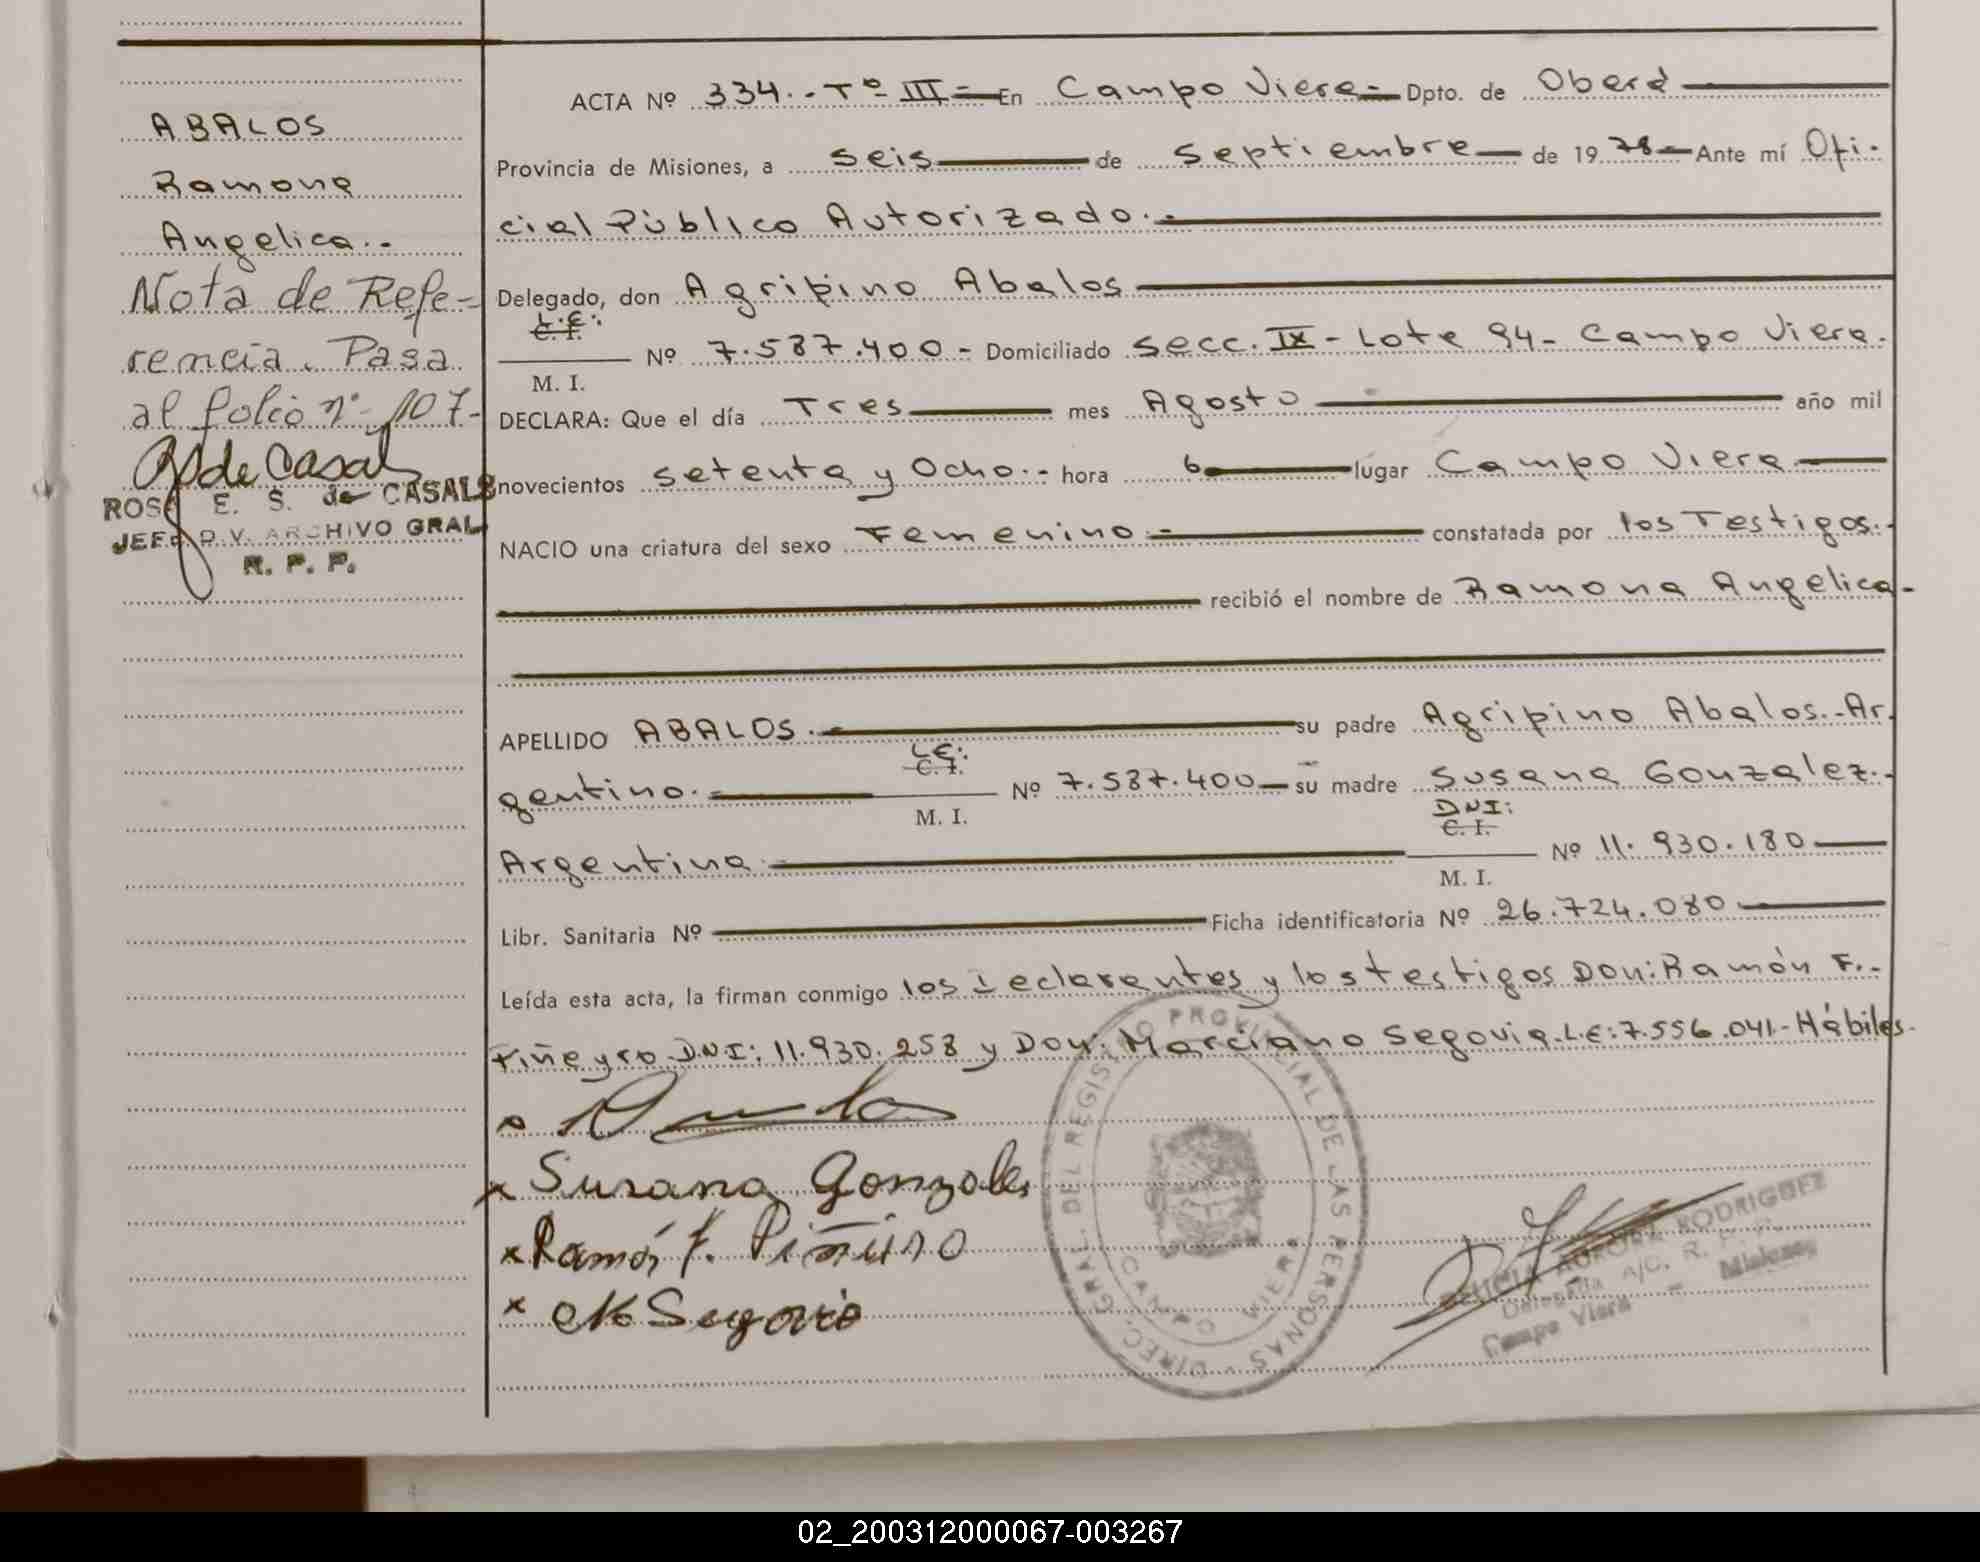 ABALOS
Ramona
Angelica.-
Nota de Refe-
rencia. Pasa
al folio nº 107-
de Casals
ROSA E. S. de CASALS
JEFE DIV. ARCHIVO GRAL
R. P. P.
ACTA Nº 334.- Tº III - En Campo Viera - Dpto. de Oberá
Provincia de Misiones, a seis de septiembre de 1978 - Ante mí Ofi-
cial Público Autorizado.-
Delegado, don Agripino Abalos
L.E:
C. I.
M. I.
Nº 7.587.400 - Domiciliado secc. IX - Lote 94 - Campo Viera.
DECLARA: Que el día Tres mes Agosto año mil
novecientos setenta y Ocho.- hora 6 lugar Campo Viera
NACIO una criatura del sexo Femenino.- constatada por los Testigos.-
recibió el nombre de Ramona Angelica-
APELLIDO ABALOS.- su padre Agripino Abalos.-Ar-
L.E:
C. I.
gentino.- Nº 7.587.400 - su madre Susana Gonzalez.-
M. I.
DNI:
C. I.
Argentina.- Nº 11.930.180
M. I.
Libr. Sanitaria Nº Ficha identificatoria Nº 26.724.080
Leída esta acta, la firman conmigo los Declarantes y los testigos Don: Ramón F.-
Piñeyro.DNI: 11.930.258 y Don: Marciano Segovia.L.E:7.556.041.-Hábiles.-
x
x Susana Gonzales
x Ramón F. Piñeiro
x M Segovia
DIREC. GRAL. DEL REGISTRO PROVINCIAL DE LAS PERSONAS
CAMPO VIERA
AURORA RODRIGUEZ
Delegada A/C. R. P. P.
Campo Viera - Misiones
02_200312000067-003267